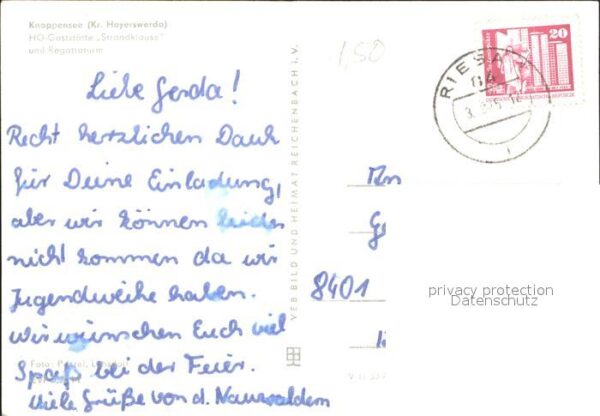 Knappensee (Kr. Hoyerswerda)
HO-Gaststätte „Strandklause"
und Regattaturm
1,50
20
RIESA 1
Liebe Gerda!
Recht herzlichen Dank
für Deine Einladung,
aber wir können leider
nicht kommen da wir
Jugendweihe haben.
Wir wünschen Euch viel
Spaß bei der Feier.
Viele Grüße von d.
VEB BILD UND HEIMAT REICHENBACH I. V.
8401
privacy protection
Datenschutz
Foto: